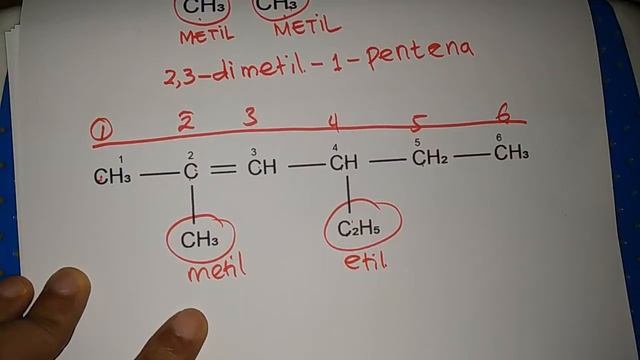 CH₃ CH₃
METIL METIL
2,3-dimetil-1-pentena
1 2 3 4 5 6
1 2 3 4 5 6
CH₃ — C = CH — CH — CH₂ — CH₃
CH₃ C₂H₅
metil etil